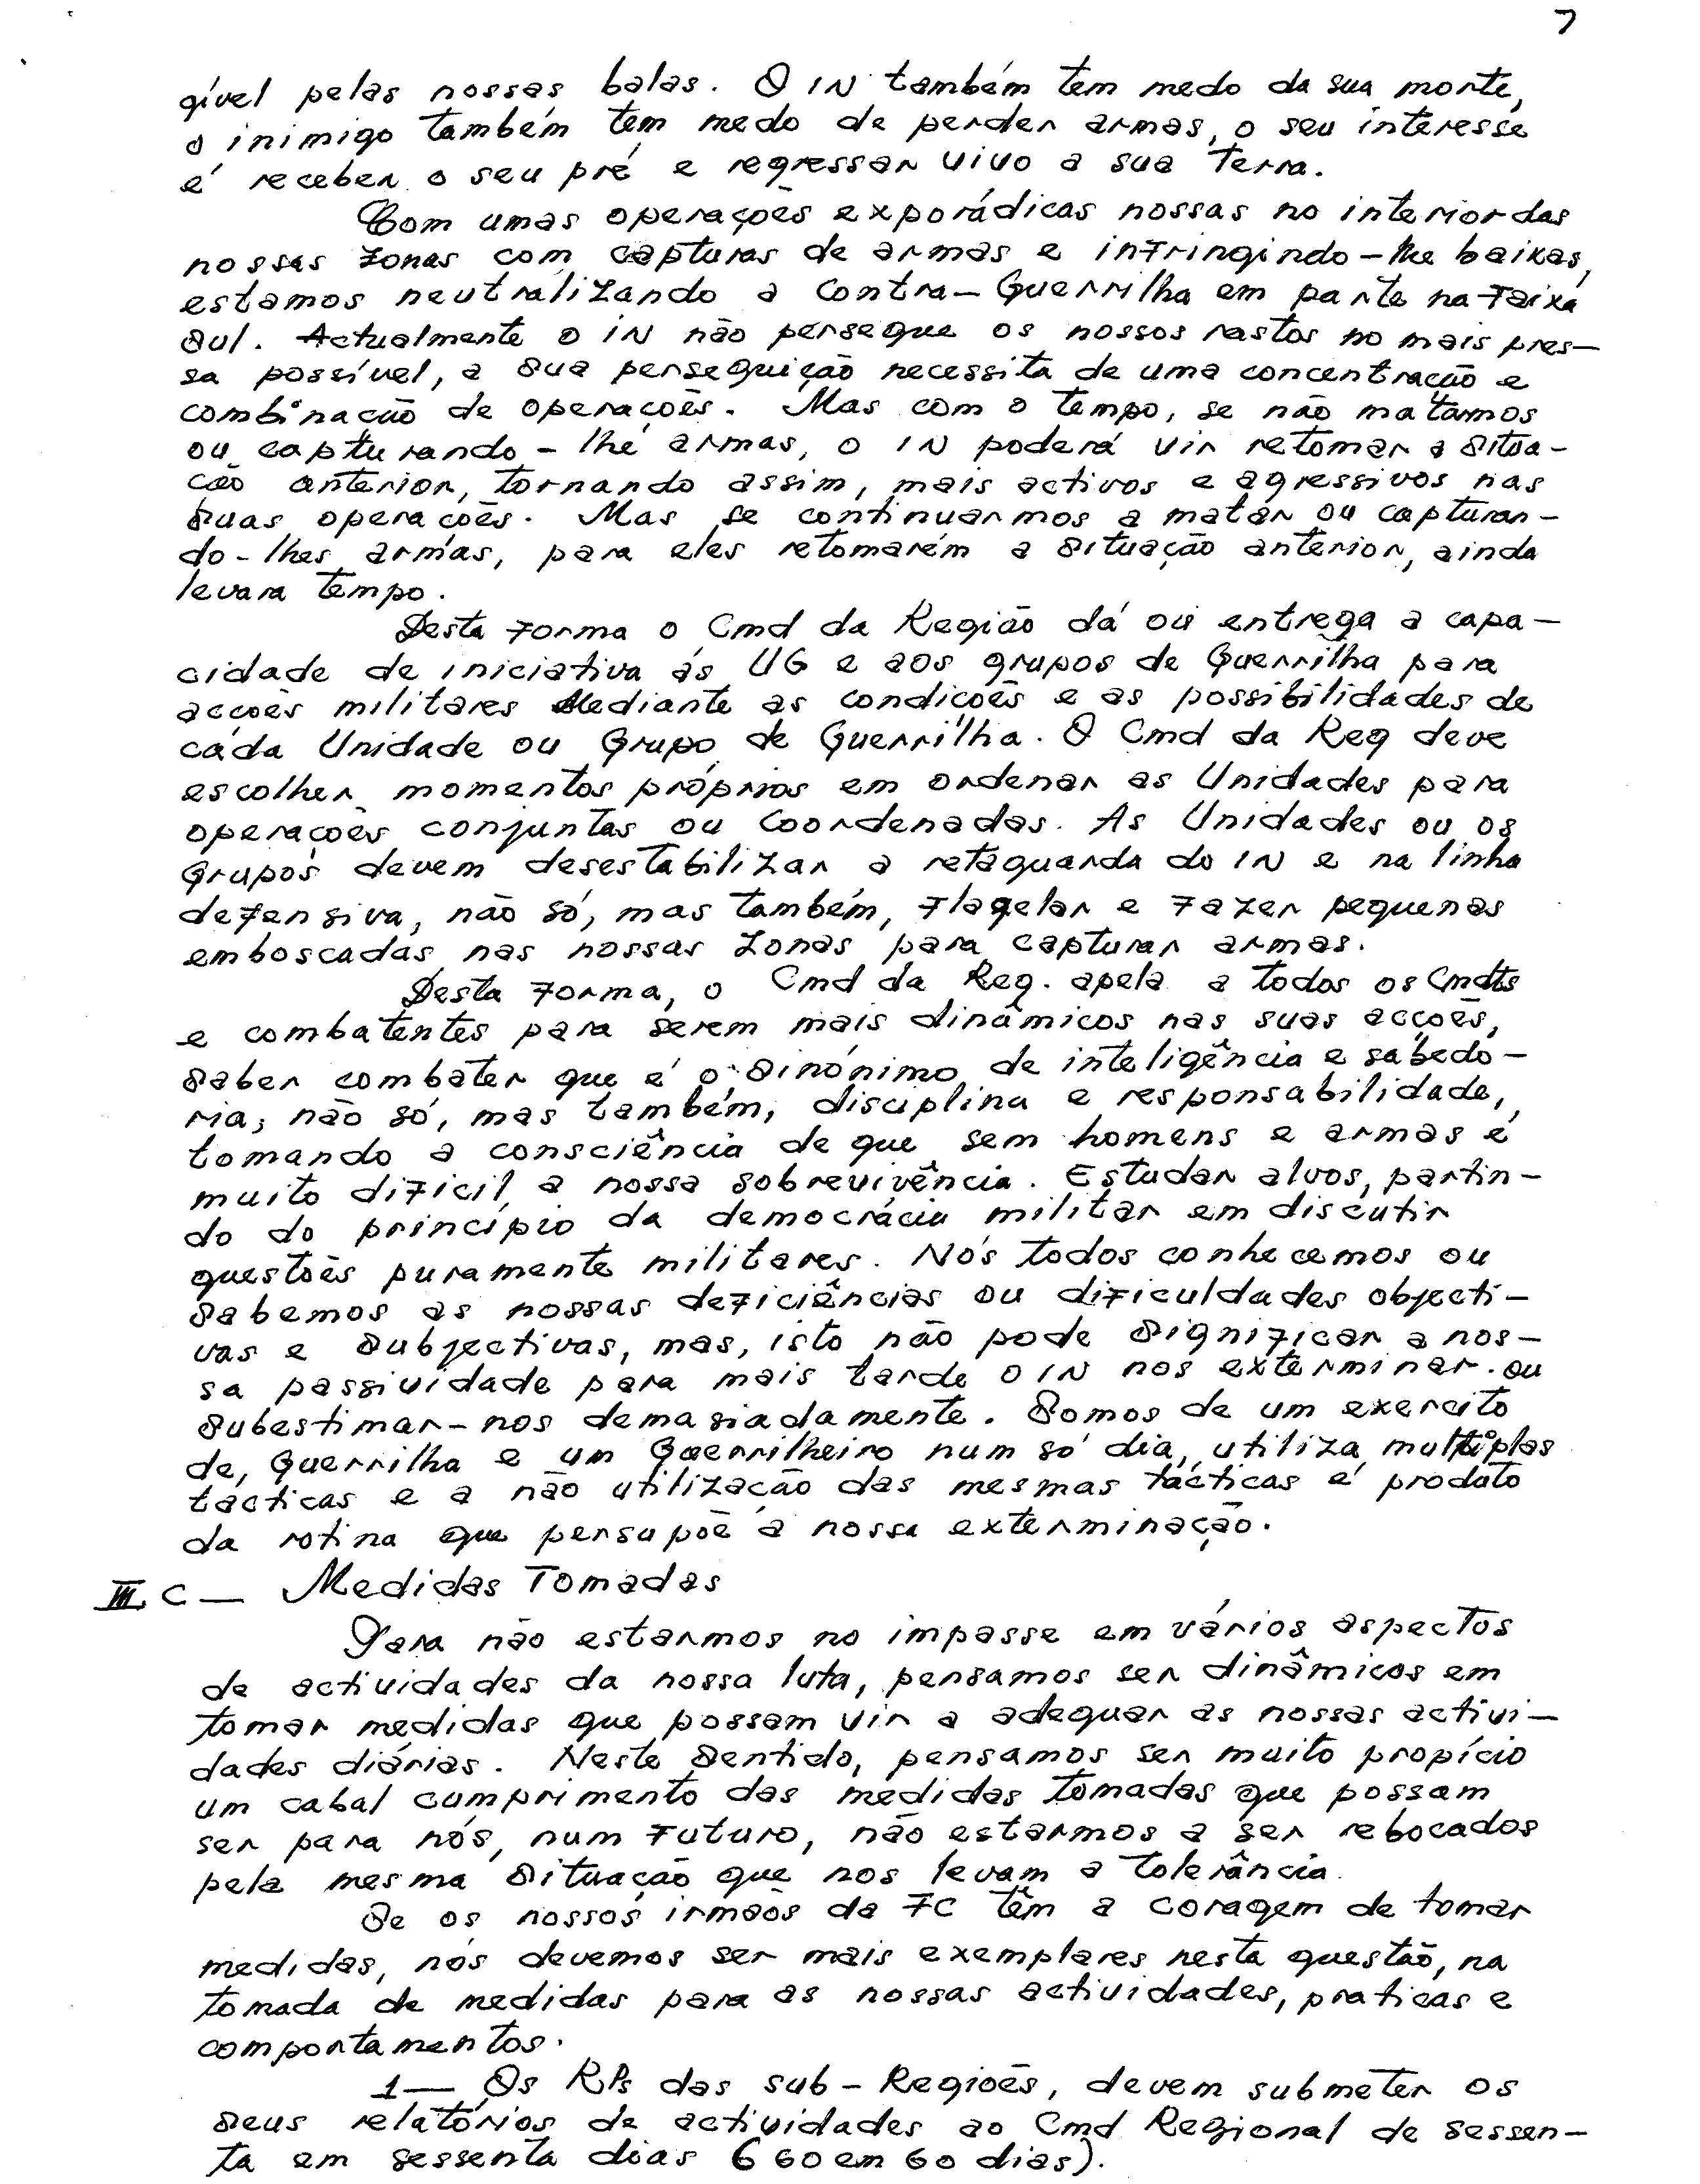 7
gível pelas nossas balas. O IN também tem medo da sua morte,
o inimigo também tem medo de perder armas, o seu interesse
é receber o seu pré e regressar vivo a sua terra.
Com umas operações exporádicas nossas no interior das
nossas zonas com capturas de armas e infringindo-lhe baixas,
estamos neutralizando a Contra-Guerrilha em parte na Faixa
Sul. Actualmente o IN não persegue os nossos rastos no mais pres-
sa possível, a sua perseguição necessita de uma concentração e
combinação de operações. Mas com o tempo, se não matarmos
ou capturando-lhe armas, o IN poderá vir retomar a situa-
ção anterior, tornando assim, mais activos e agressivos nas
suas operações. Mas se continuarmos a matar ou capturan-
do-lhes armas, para eles retomarém a situação anterior, ainda
levara tempo.
Desta forma o Cmd da Região dá ou entrega a capa-
cidade de iniciativa ás UG e aos grupos de Guerrilha para
acções militares Mediante as condições e as possibilidades de
cada Unidade ou Grupo de Guerrilha. O Cmd da Reg deve
escolher momentos próprios em ordenar as Unidades para
operações conjuntas ou Coordenadas. As Unidades ou os
Grupos devem desestabilizar a retaguarda do IN e na linha
defensiva, não só, mas também, flagelar e fazer pequenas
emboscadas nas nossas zonas para capturar armas.
Desta forma, o Cmd da Reg. apela a todos os Cmdts
e combatentes para serem mais dinâmicos nas suas acções,
saber combater que é o sinónimo de inteligência e sabedo-
ria; não só, mas também, disciplina e responsabilidade,
tomando a consciência de que sem homens e armas é
muito difícil a nossa sobrevivência. Estudar alvos, partin-
do do princípio da democrácia militar em discutir
questões puramente militares. Nós todos conhecemos ou
sabemos as nossas deficiências ou dificuldades objecti-
vas e subjectivas, mas, isto não pode significar a nos-
sa passividade para mais tarde o IN nos exterminar ou
subestimar-nos demasiadamente. Somos de um exercito
de Guerrilha e um Guerrilheiro num só dia, utiliza multiplas
tácticas e a não utilização das mesmas tácticas é produto
da rotina que persupõe a nossa exterminação.
III. C — Medidas Tomadas
Para não estarmos no impasse em vários aspectos
de actividades da nossa luta, pensamos ser dinâmicos em
tomar medidas que possam vir a adequar as nossas activi-
dades diárias. Neste sentido, pensamos ser muito propício
um cabal cumprimento das medidas tomadas que possam
ser para nós, num futuro, não estarmos a ser rebocados
pela mesma situação que nos levam a tolerância.
Se os nossos irmãos da FC têm a coragem de tomar
medidas, nós devemos ser mais exemplares nesta questão, na
tomada de medidas para as nossas actividades, praticas e
comportamentos.
1— Os RPs das sub-Regiões, devem submeter os
seus relatórios de actividades ao Cmd Regional de sessen-
ta em sessenta dias (60 em 60 dias).